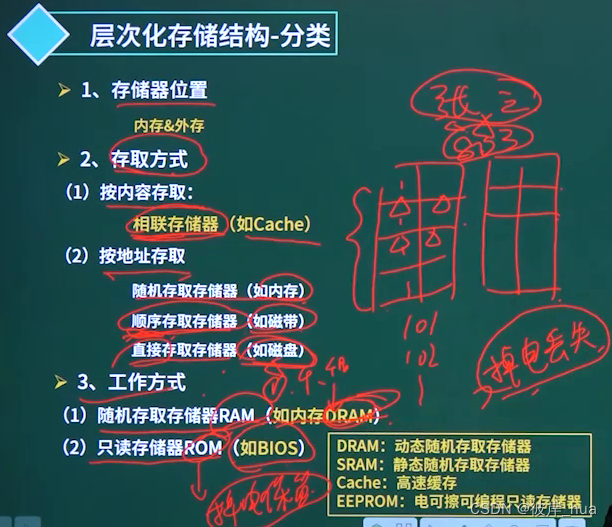 层次化存储结构-分类
1、存储器位置
内存&外存
2、存取方式
（1）按内容存取：
相联存储器（如Cache）
（2）按地址存取
随机存取存储器（如内存）
顺序存取存储器（如磁带）
直接存取存储器（如磁盘）
3、工作方式
（1）随机存取存储器RAM（如内存DRAM）
（2）只读存储器ROM（如BIOS）
张三
101
102
掉电丢失
DRAM：动态随机存取存储器
SRAM：静态随机存取存储器
Cache：高速缓存
EEPROM：电可擦可编程只读存储器